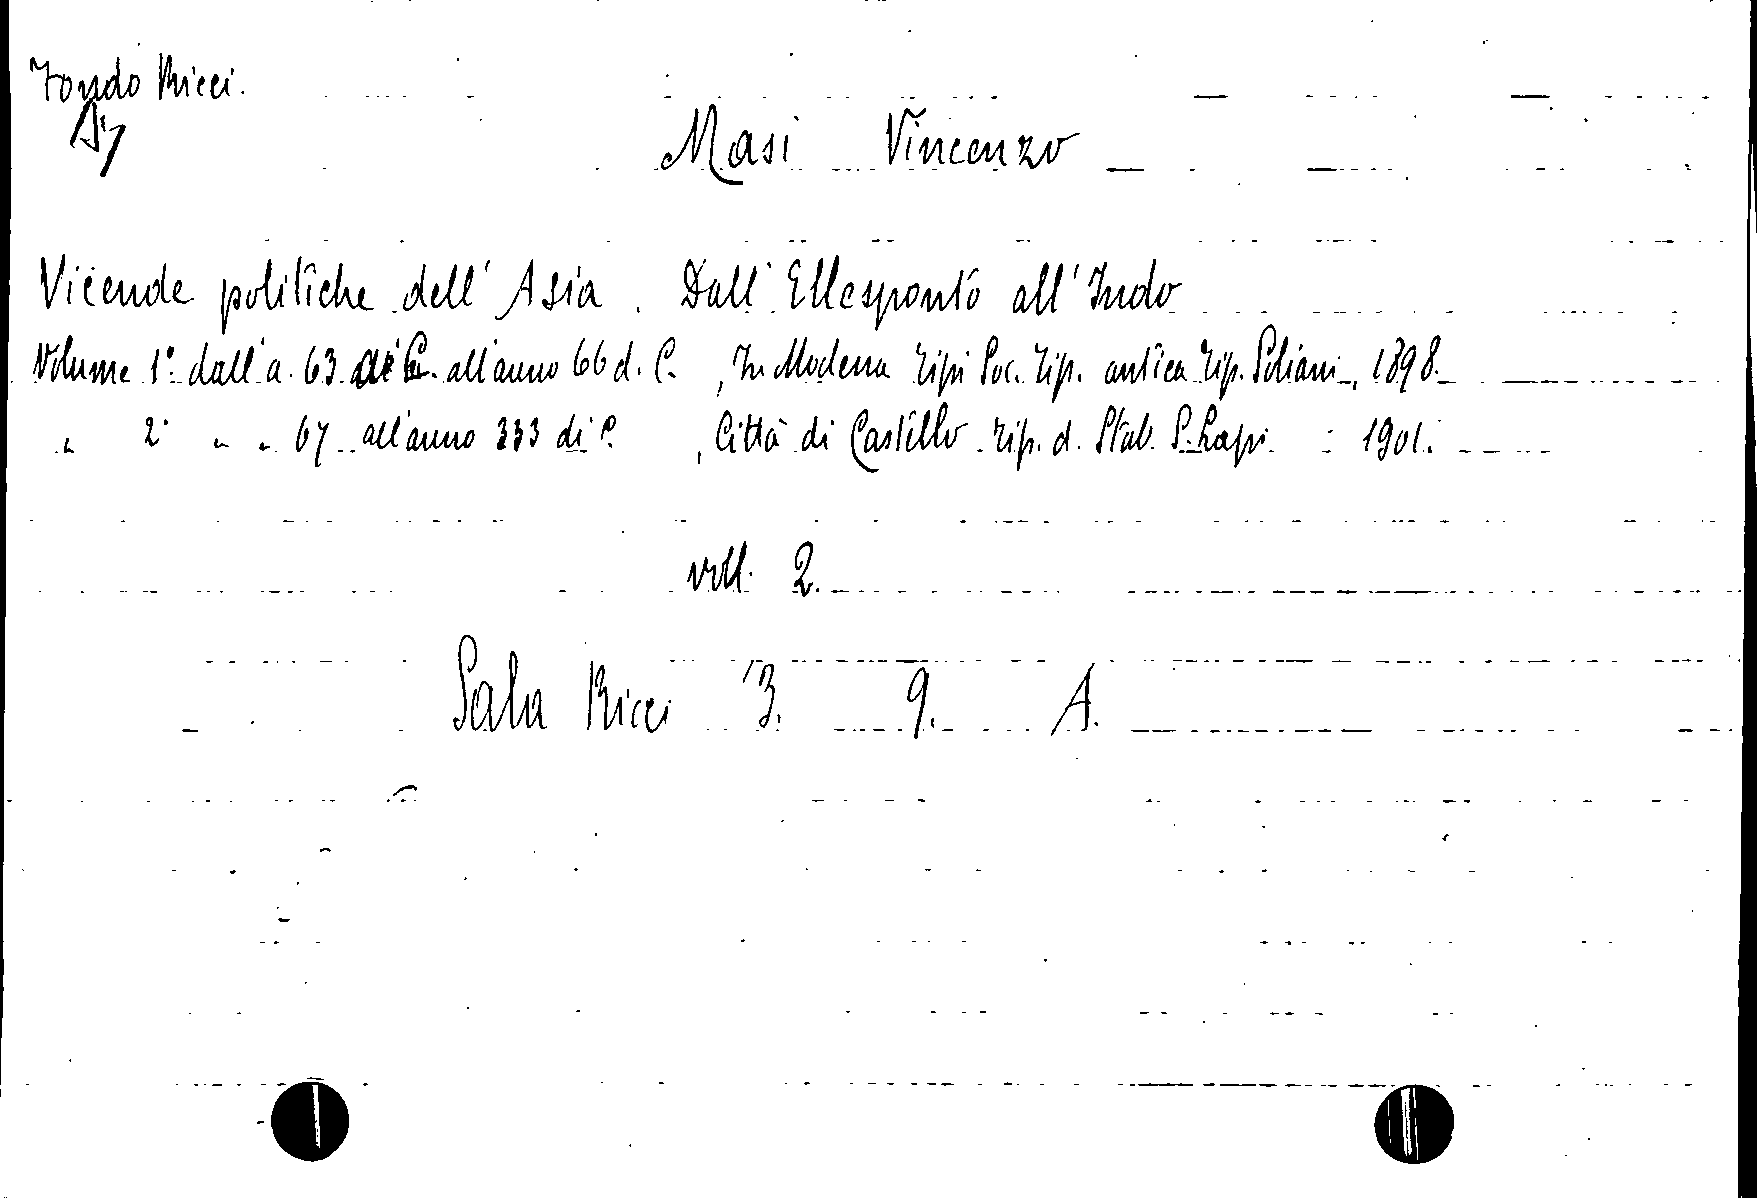 Fondo Ricci.
Masi Vincenzo
Vicende politiche dell'Asia. Dall'Ellesponto all'Indo
Volume 1° dall'a. 63 all'anno 66 d. C., In Modena Tipi Soc. Tip. antica tip. Soliani, 1898.
" 2° " " 67 all'anno 333 di C., Città di Castello. Tip. d. Stab. S. Lapi : 1901.
voll. 2.
Sala Ricci 3. 9. A.